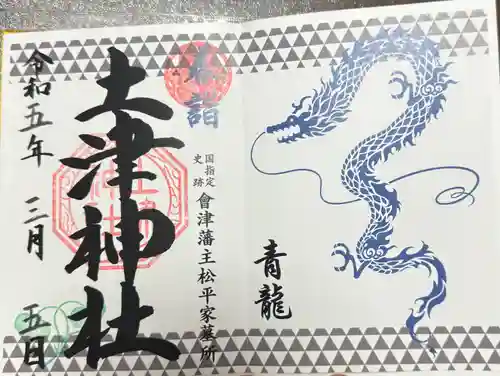 春詣
青龍
国指定
史跡
會津藩主松平家墓所
土津神社
令和五年
三月
五日